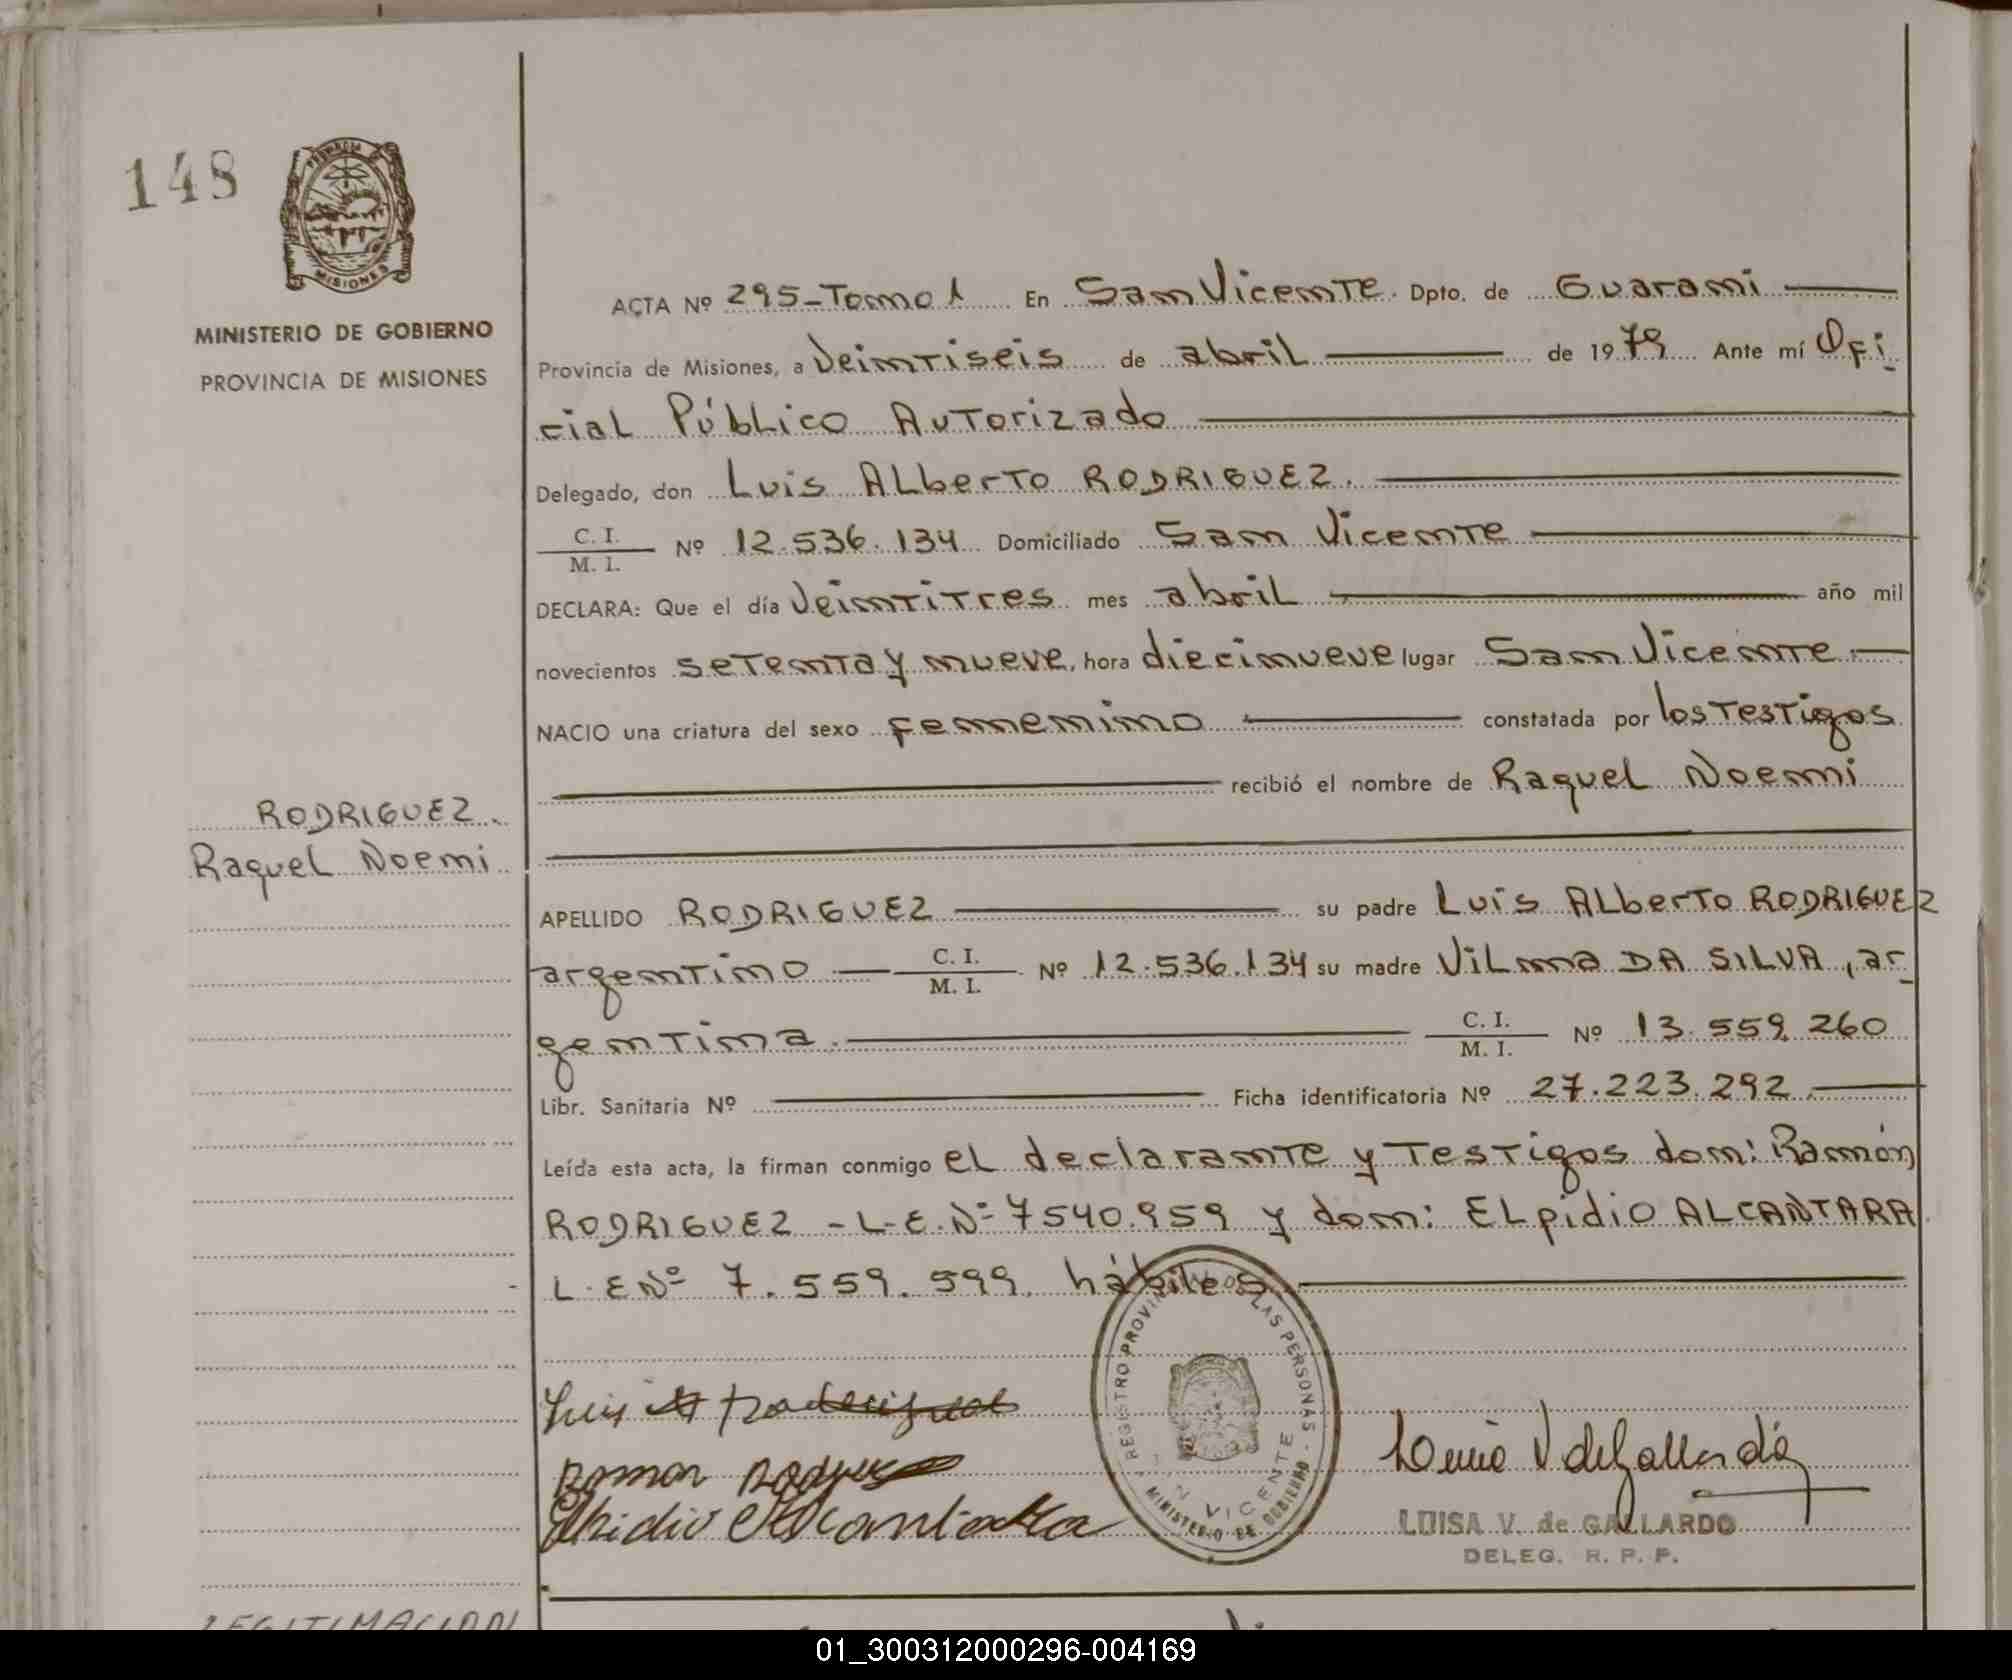 148
PROVINCIA DE
MISIONES
MINISTERIO DE GOBIERNO
PROVINCIA DE MISIONES
ACTA Nº 295-Tomo 1 En San Vicente. Dpto. de Guarani
Provincia de Misiones, a Veintiseis de abril de 1979 Ante mí Ofi
cial Público Autorizado
Delegado, don Luis Alberto RODRIGUEZ.
C. I.
M. I.
Nº 12.536.134 Domiciliado San Vicente
DECLARA: Que el día Veintitres mes abril año mil
novecientos setenta y nueve, hora diecinueve lugar San Vicente
NACIO una criatura del sexo femenino constatada por los testigos
recibió el nombre de Raquel Noemi
RODRIGUEZ.
Raquel Noemi
APELLIDO RODRIGUEZ su padre Luis Alberto RODRIGUEZ
argentino C. I. M. I. Nº 12.536.134 su madre Vilma DA SILVA, ar
gentina. C. I. M. I. Nº 13.559.260
Libr. Sanitaria Nº Ficha identificatoria Nº 27.223.292
Leída esta acta, la firman conmigo el declarante y testigos don: Ramón
RODRIGUEZ - L.E.Nº 7540.959 y don: Elpidio ALCANTARA
L.E Nº 7.559.599. hábiles
REGISTRO PROVIN DE LAS PERSONAS
N VICENTE
MINISTERIO DE GOBIERNO
Luis A Rodriguez
Ramon Rodriguez
Elpidio Alcantara
Luisa V de Gallardo
LUISA V. de GALLARDO
DELEG. R. P. P.
LEGITIMACION
01_300312000296-004169